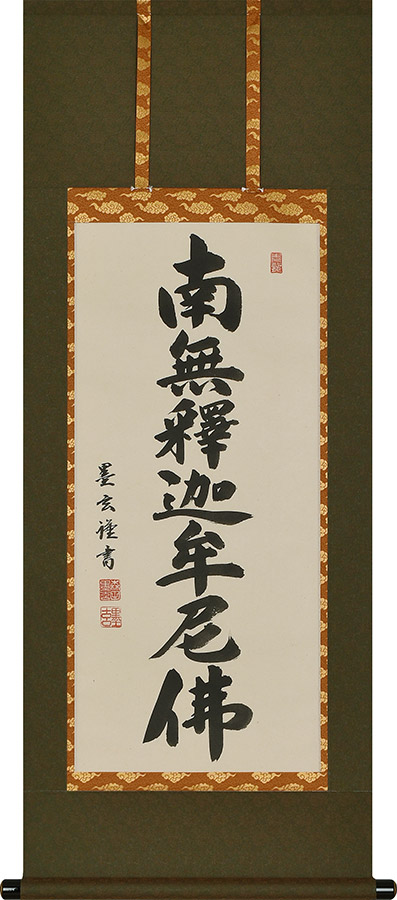 南無釋迦牟尼佛
墨玄謹書